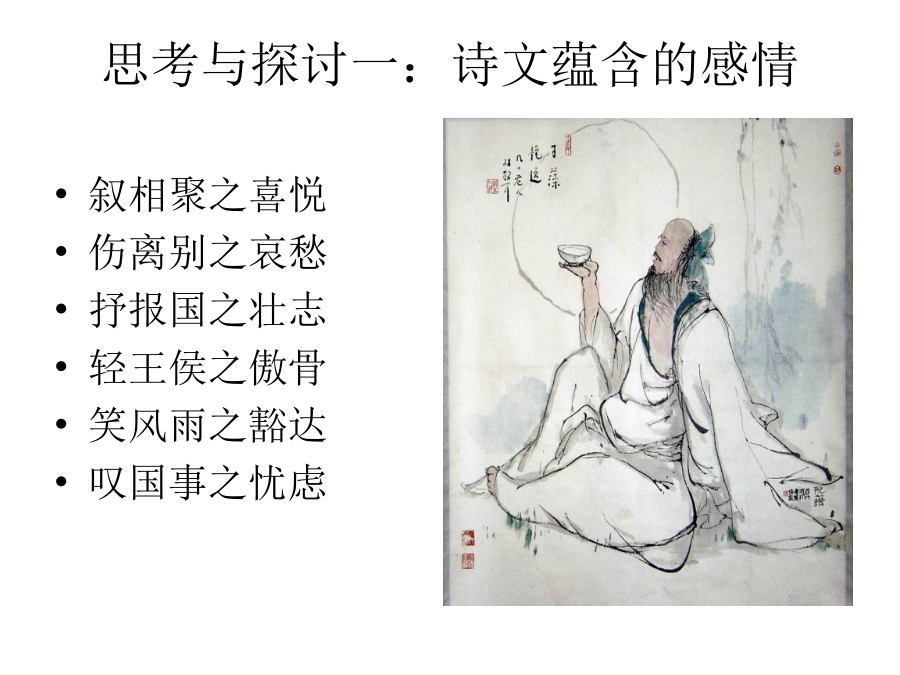 思考与探讨一：诗文蕴含的感情
• 叙相聚之喜悦
• 伤离别之哀愁
• 抒报国之壮志
• 轻王侯之傲骨
• 笑风雨之豁达
• 叹国事之忧虑
九十老人